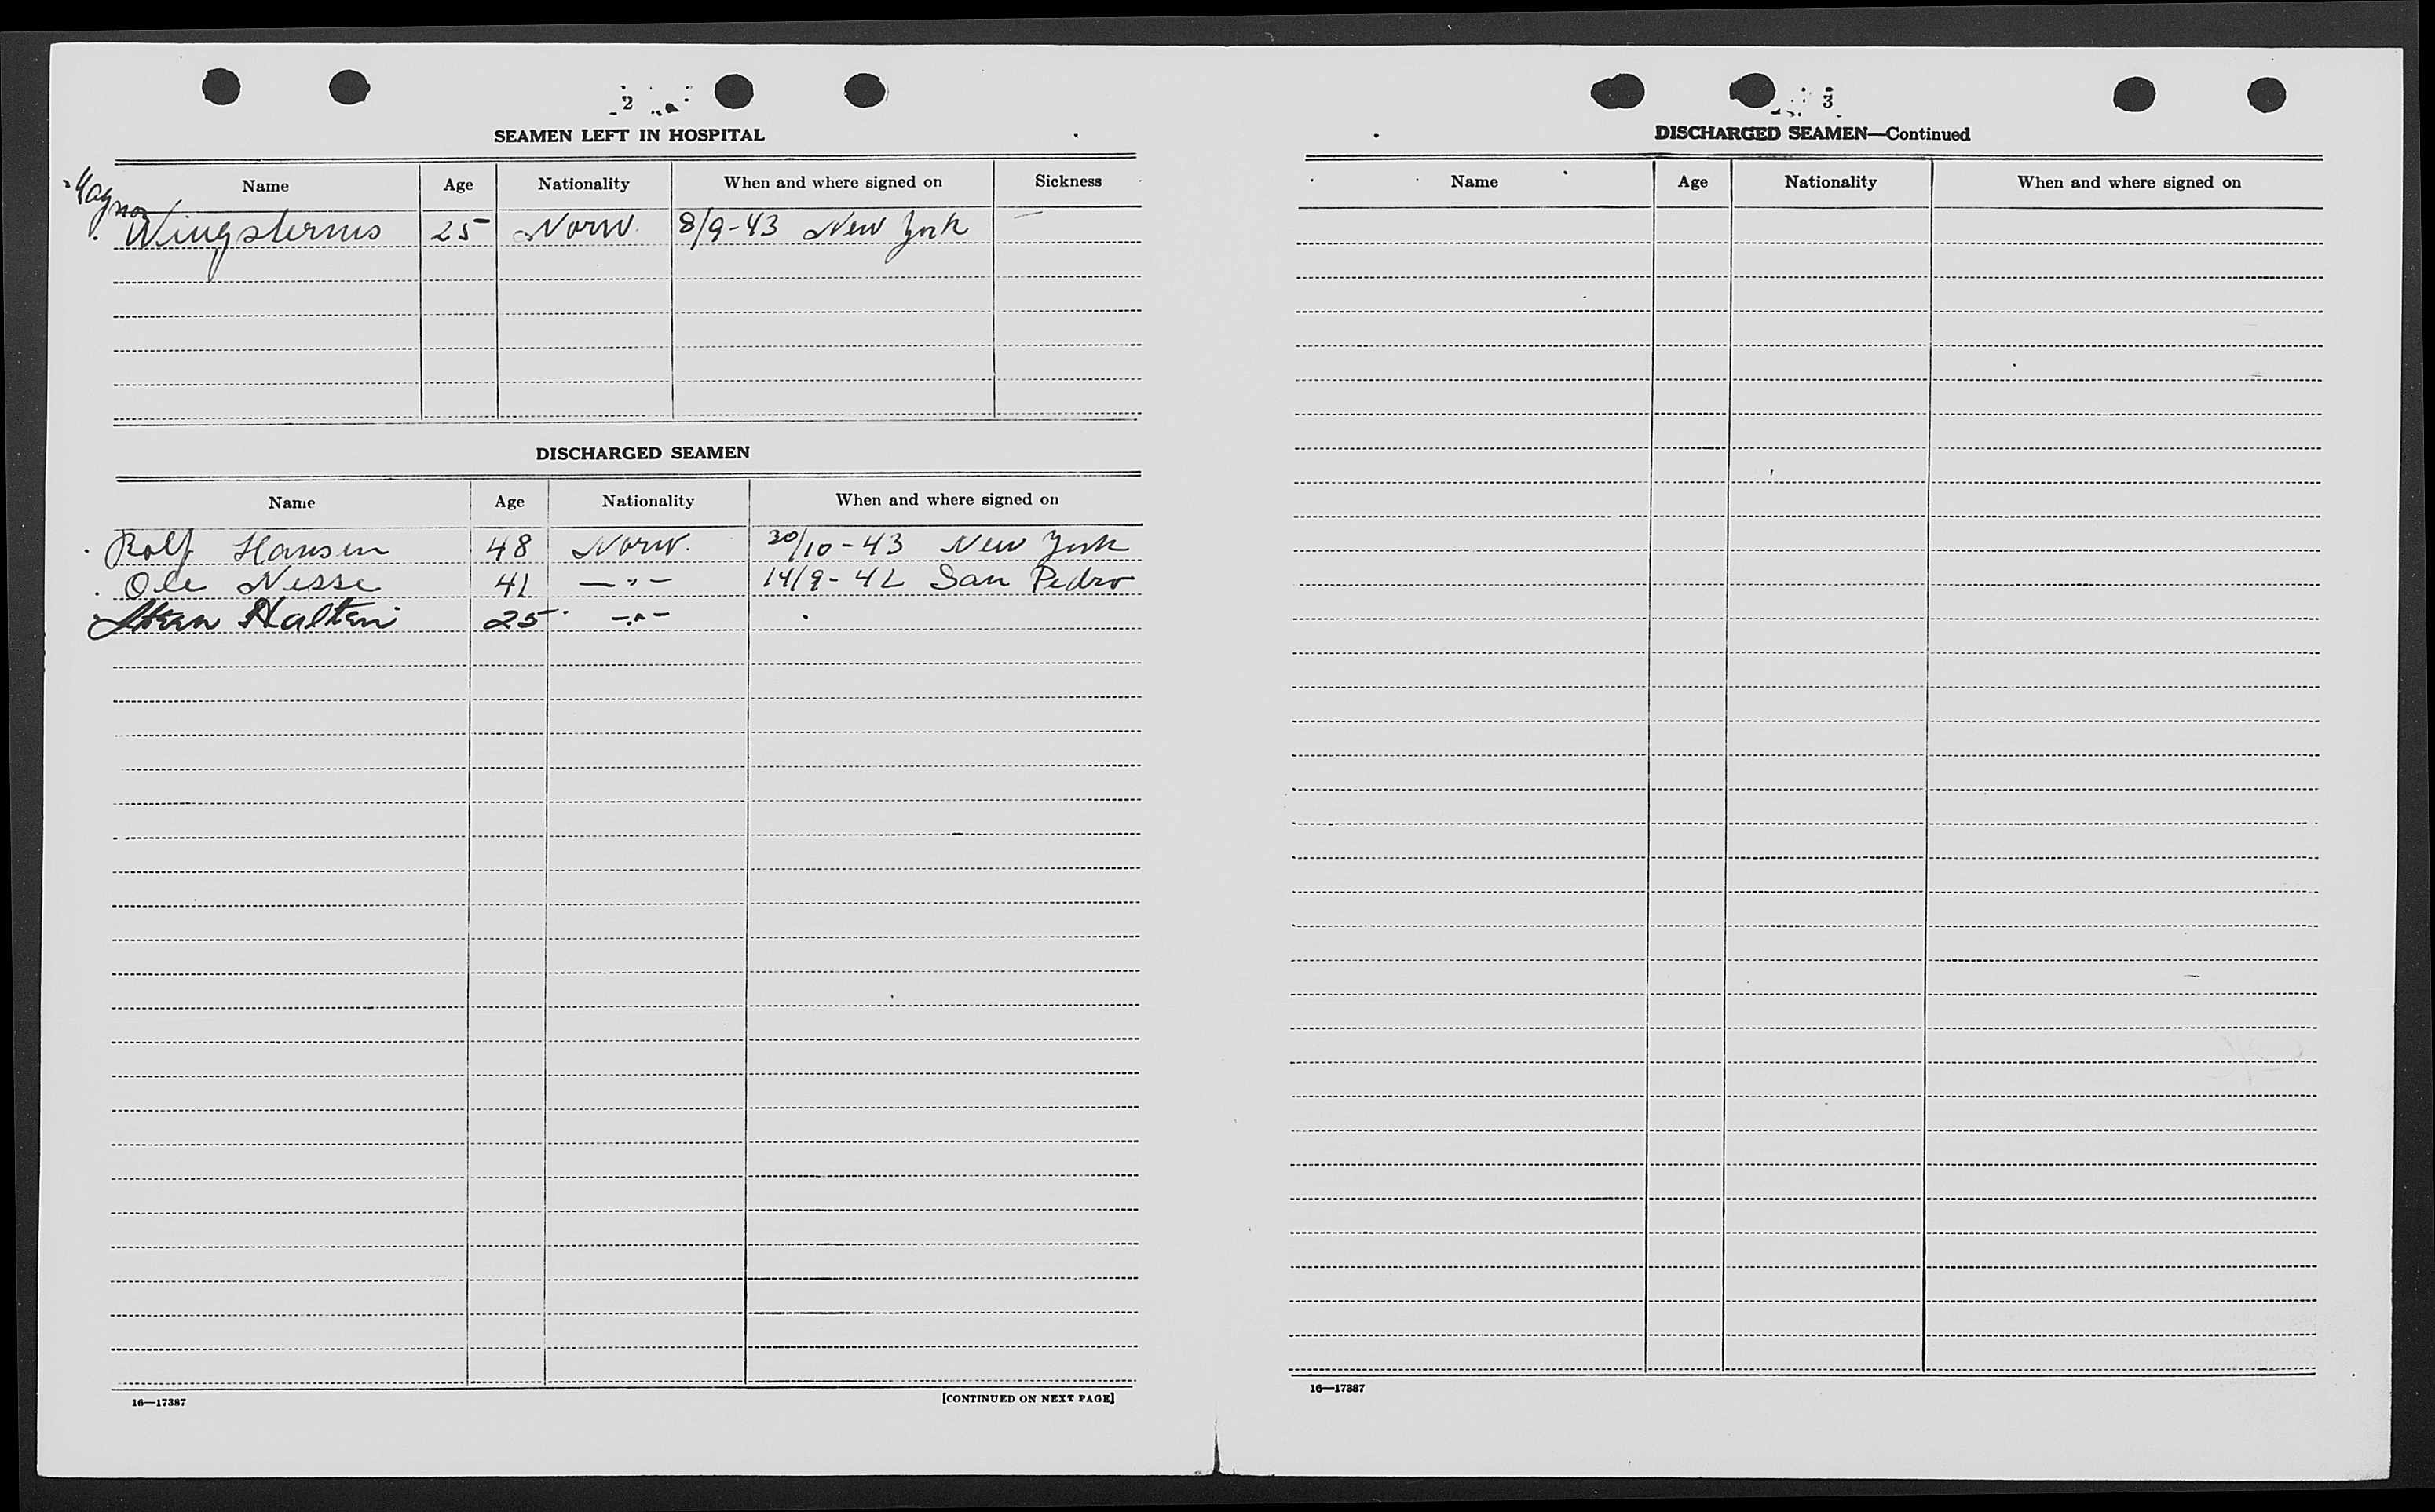 2
SEAMEN LEFT IN HOSPITAL
Name Age Nationality When and where signed on Sickness
Magnor
Wingsternes 25 Norw. 8/9-43 New York —
DISCHARGED SEAMEN
Name Age Nationality When and where signed on
Rolf Hansen 48 Norw. 30/10-43 New York
Ole Nesse 41 —"— 14/9-42 San Pedro
Halten 25 —"—
16—17387 [CONTINUED ON NEXT PAGE]
3
DISCHARGED SEAMEN—Continued
Name Age Nationality When and where signed on
16—17387